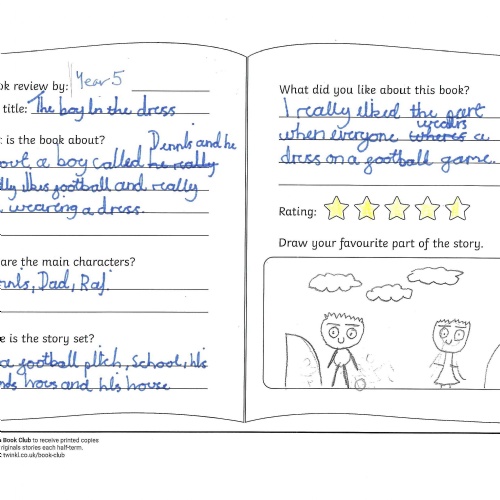 ok review by: Year 5
title: The boy in the dress
is the book about?
Dennis and he
out a boy called he really
lly likes football and really
wearing a dress.
are the main characters?
nnis, Dad, Raj.
e is the story set?
a football pitch, School, his
nds hous and his house
Book Club to receive printed copies
riginals stories each half-term.
twinkl.co.uk/book-club
What did you like about this book?
I really liked the part
wears
when everyone wheres a
dress on a football game.
Rating:
Draw your favourite part of the story.